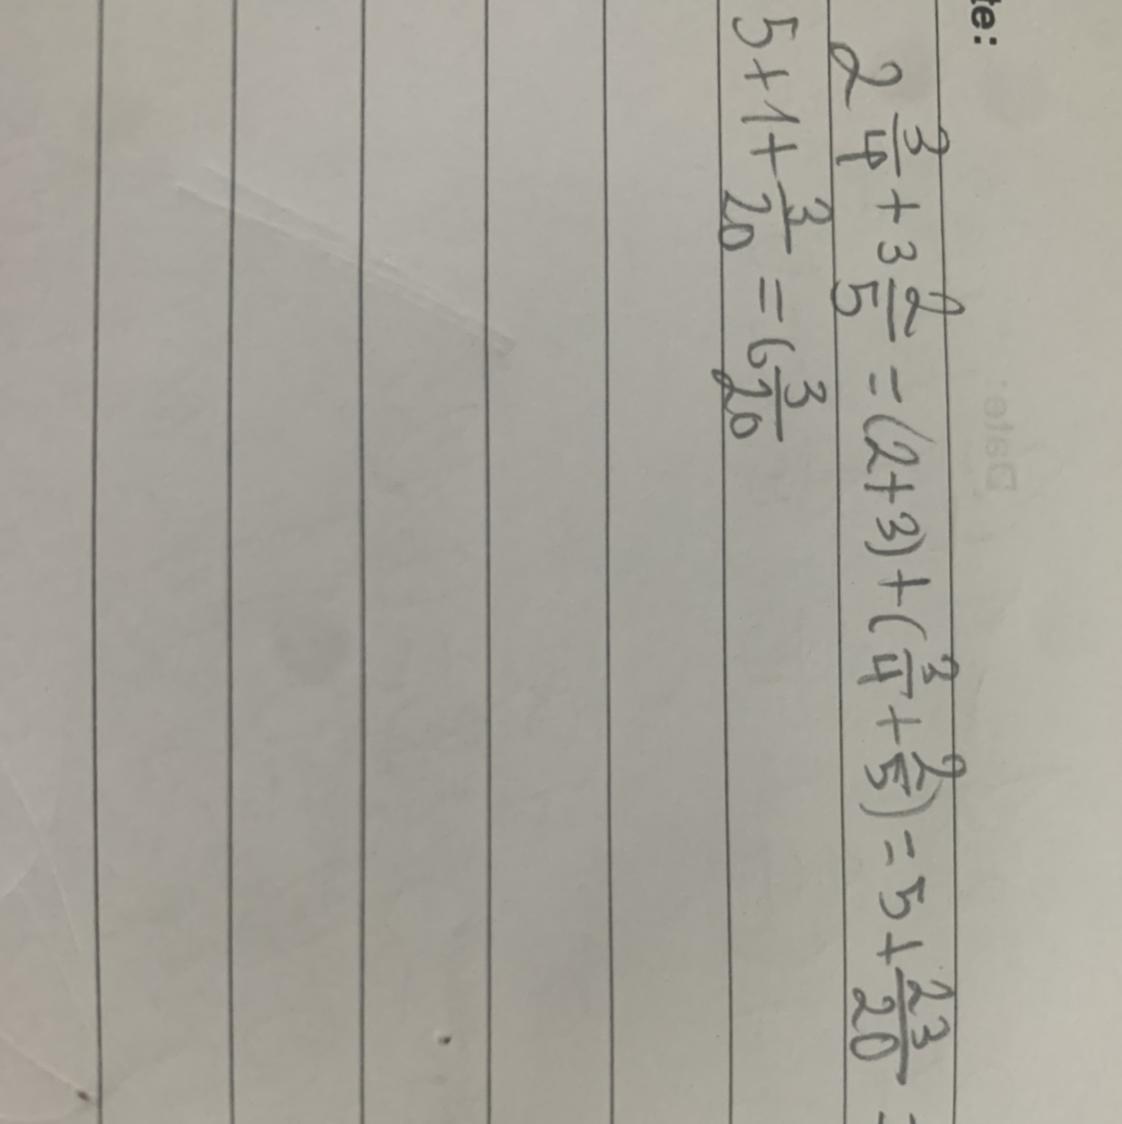 te:
2 3/4 + 3 2/5 = (2+3) + (3/4 + 2/5) = 5 + 23/20 =
5 + 1 + 3/20 = 6 3/20
Date: